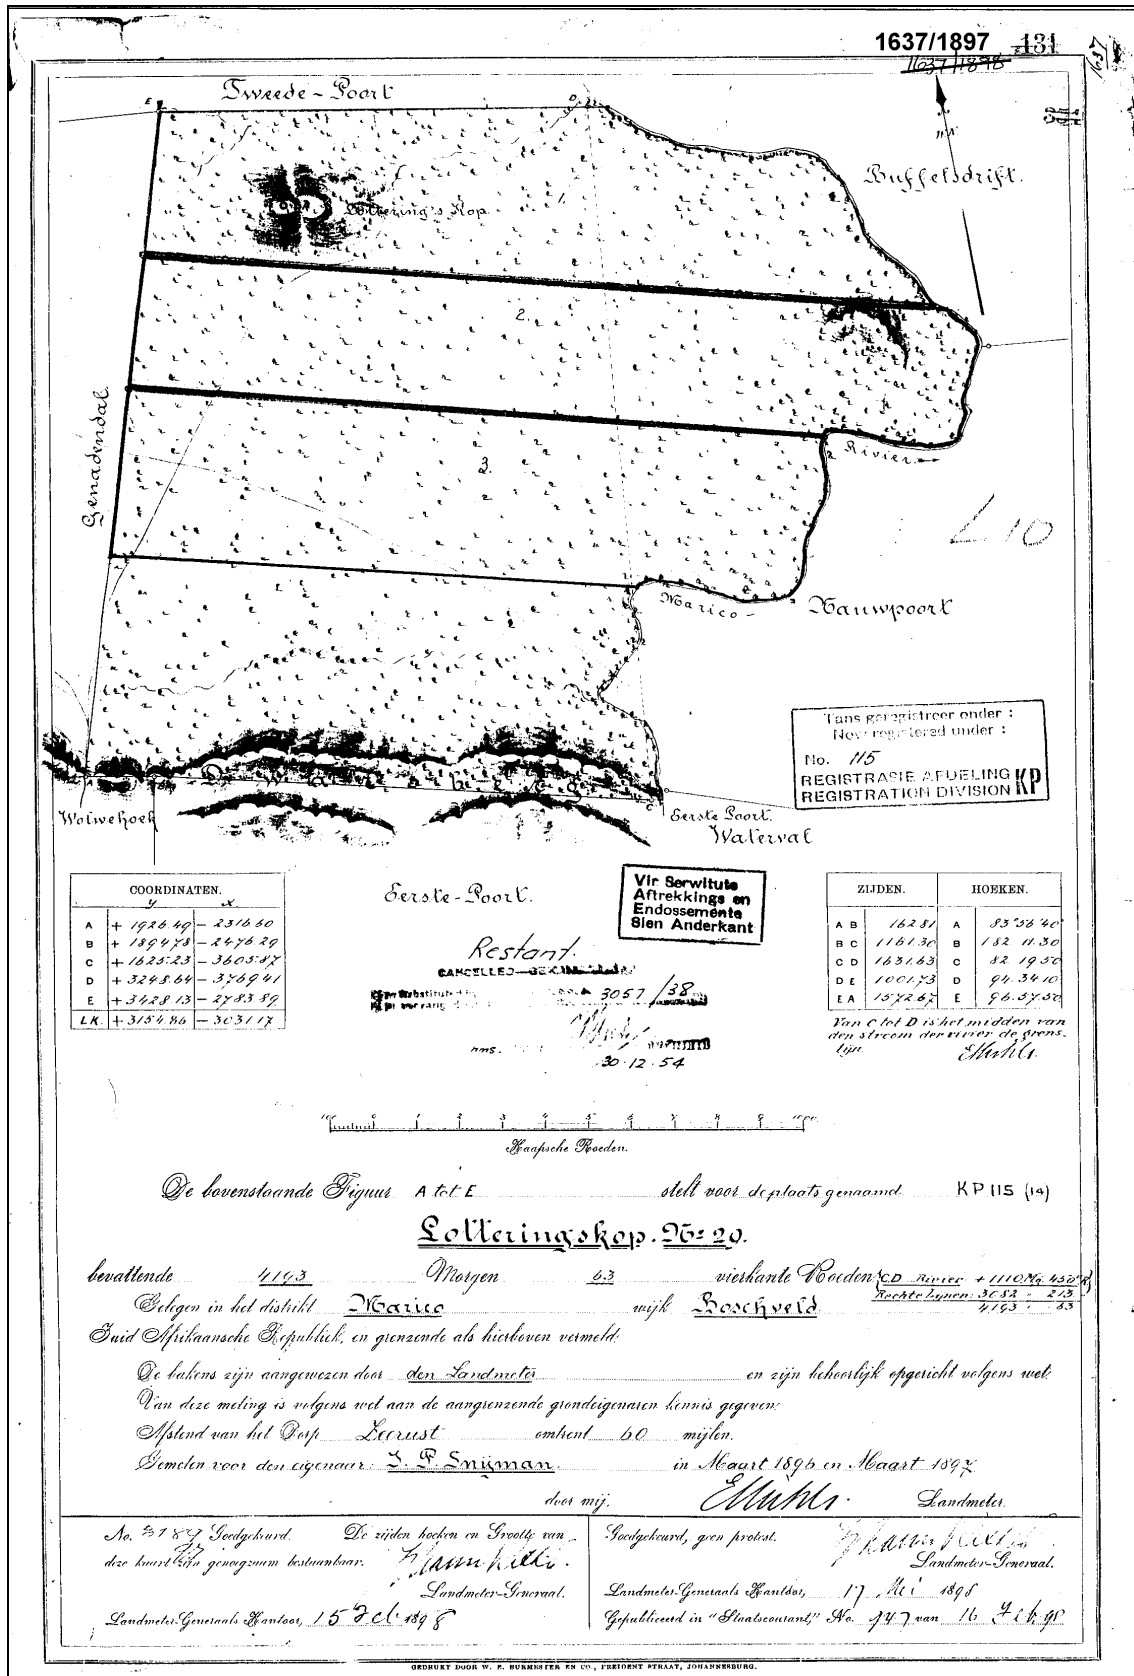 1637/1897 131
1637/1898
1637
Tweede-Poort
E
D
Buffelsdrift.
Lottering's Kop
1.
2.
3.
Genadendal
Rivier
L 10
Marico-
Nauwpoort
Tans geregistreer onder :
Now registered under :
No. 115
REGISTRASIE AFDELING KP
REGISTRATION DIVISION
Dwarsberg
Wolwehoek
Eerste Poort.
Waterval
Eerste-Poort.
Vir Serwitute
Aftrekkings en
Endossemente
Sien Anderkant
COORDINATEN.
y x
A + 1926.49 - 2316.60
B + 1894.78 - 2476.29
C + 1625.23 - 3605.87
D + 3248.64 - 3769.41
E + 3428.13 - 2783.89
LK. + 3154.86 - 3031.17
ZIJDEN. HOEKEN.
A B 162.81 A 83°56'40"
B C 1161.30 B 182.11.30
C D 1631.63 C 82.19.50
D E 1001.73 D 94.34.10
E A 1572.67 E 96.57.50
Van C tot D is het midden van
den stroom der rivier de grens-
lijn.
EMühls.
Restant.
CANCELLED
3057/38
30.12.54
1 2 3 4 5 6 7 8 9
Kaapsche Roeden.
De bovenstaande Figuur A tot E stelt voor de plaats genaamd KP 115 (14)
Lotteringskop. No 29.
bevattende 4193 Morgen 63 vierkante Roeden (CD Rivier +1110 Mg. 450
Rechte Lynen: 3082 " 213
4193 " 63
Gelegen in het distrikt Marico wijk Boschveld
Zuid Afrikaansche Republiek, en grenzende als hierboven vermeld:
De bakens zijn aangewezen door den Landmeter en zijn behoorlijk opgericht volgens wet.
Van deze meting is volgens wet aan de aangrenzende grondeigenaren kennis gegeven:
Afstand van het Dorp Zeerust omtrent 60 mijlen.
Gemeten voor den eigenaar: J. P. Snijman. in Maart 1896 en Maart 1897
door mij. EMühls. Landmeter.
No. 3187 Goedgekeurd. De zijden hoeken en Grootte van
deze kaart zijn genoegzaam bestaanbaar.
Landmeter-Generaal.
Landmeter-Generaals Kantoor, 15 Feb 1898
Goedgekeurd, geen protest.
Landmeter-Generaal.
Landmeter-Generaals Kantoor, 17 Mei 1898
Gepubliceerd in "Staatscourant," No. 947 van 16 Feb 98
GEDRUKT DOOR W. E. BURMESTER EN CO., PRESIDENT STRAAT, JOHANNESBURG.